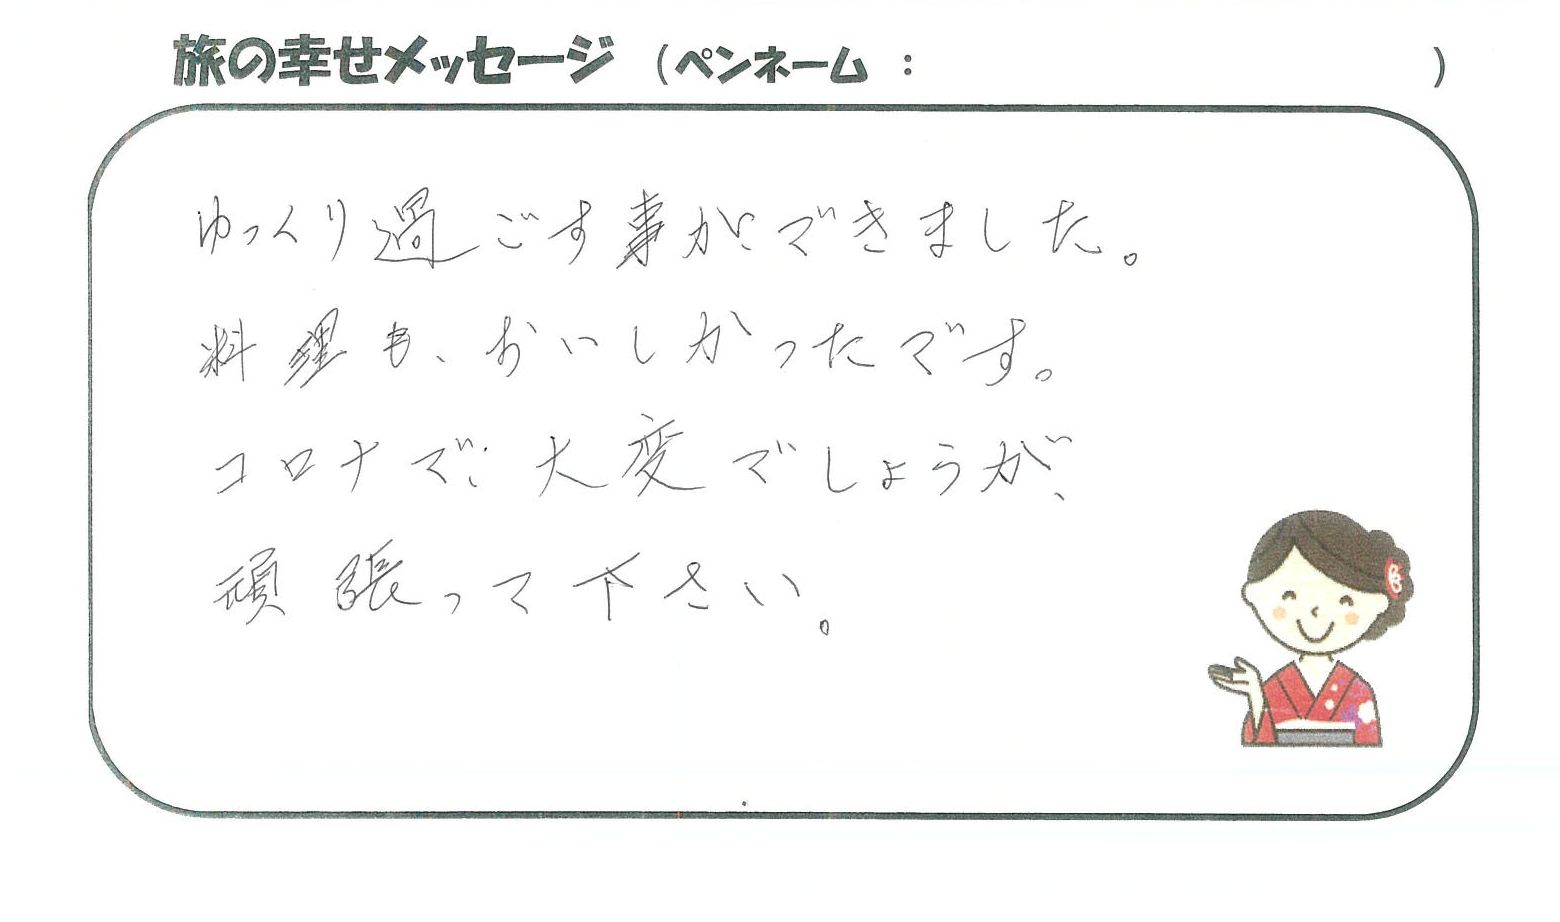 旅の幸せメッセージ（ペンネーム：　　　　　　　）
ゆっくり過ごす事ができました。
料理も、おいしかったです。
コロナで大変でしょうが、
頑張って下さい。